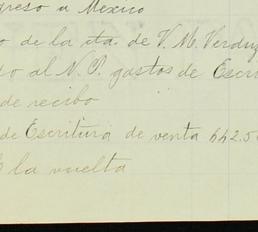 greso a Mexico
o de la cta. de V. M. Verduz
do al N. P. gastos de Escri
de recibo
de Escritura de venta 442.50
la vuelta